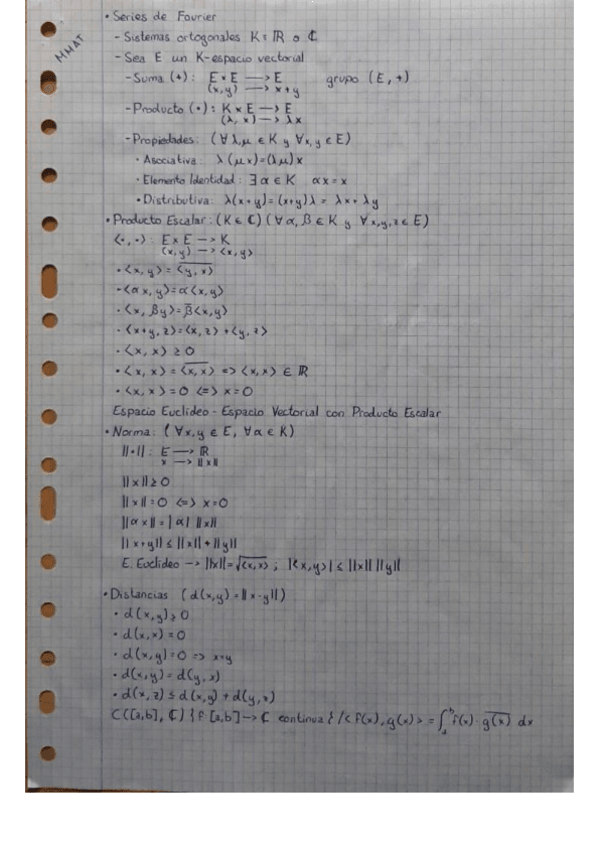 MMAT
• Series de Fourier
- Sistemas ortogonales K = ℝ o ℂ
- Sea E un K-espacio vectorial
- Suma (+): E × E → E grupo (E, +)
(x, y) → x + y
- Producto (·): K × E → E
(λ, x) → λx
- Propiedades: (∀ λ, μ ∈ K y ∀ x, y ∈ E)
• Asociativa: λ(μx) = (λμ)x
• Elemento Identidad: ∃ α ∈ K αx = x
• Distributiva: λ(x+y) = (x+y)λ = λx + λy
• Producto Escalar: (K ∈ ℂ) (∀ α, β ∈ K y ∀ x, y, z ∈ E)
<·, ·>: E × E → K
(x, y) → <x, y>
• <x, y> = \overline{<y, x>}
• <αx, y> = α<x, y>
• <x, βy> = \overline{β}<x, y>
• <x+y, z> = <x, z> + <y, z>
• <x, x> ≥ 0
• <x, x> = \overline{<x, x>} => <x, x> ∈ ℝ
• <x, x> = 0 <=> x = 0
Espacio Euclideo - Espacio Vectorial con Producto Escalar
• Norma: (∀ x, y ∈ E, ∀ α ∈ K)
||·||: E → ℝ
x → ||x||
||x|| ≥ 0
||x|| = 0 <=> x = 0
||αx|| = |α| ||x||
||x+y|| ≤ ||x|| + ||y||
E. Euclideo → ||x|| = √<x, x> ; |<x, y>| ≤ ||x|| ||y||
• Distancias (d(x, y) = ||x - y||)
• d(x, y) ≥ 0
• d(x, x) = 0
• d(x, y) = 0 => x = y
• d(x, y) = d(y, x)
• d(x, z) ≤ d(x, y) + d(y, z)
C([a, b], ℂ) { f [a, b] → ℂ continua } / <f(x), g(x)> = ∫_a^b f(x) · \overline{g(x)} dx